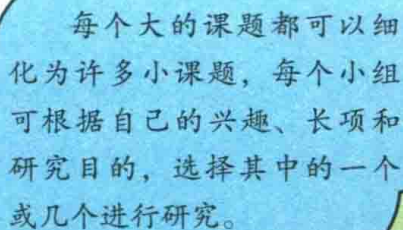 每个大的课题都可以细
化为许多小课题，每个小组
可根据自己的兴趣、长项和
研究目的，选择其中的一个
或几个进行研究。